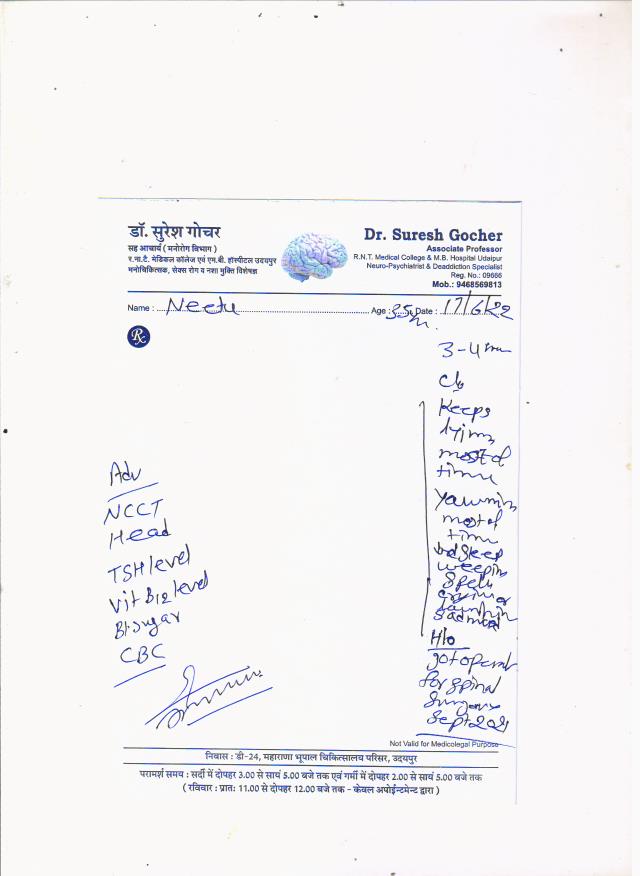 डॉ. सुरेश गोचर
सह आचार्य ( मनोरोग विभाग )
र.ना.टै. मेडिकल कॉलेज एवं एम.बी. हॉस्पीटल उदयपुर
मनोचिकित्सक, सेक्स रोग व नशा मुक्ति विशेषज्ञ
Dr. Suresh Gocher
Associate Professor
R.N.T. Medical College & M.B. Hospital Udaipur
Neuro-Psychiatrist & Deaddiction Specialist
Reg. No.: 09666
Mob.: 9468569813
Name : Neetu Age : 35 Date : 17/6/22
Rx
3-4
C/o
Keeps
lying
most of
time
Yawning
most of
time
sleep
weeping
spells
H/o
got
for spinal
surgery
Sept 2021
Adv
NCCT
Head
TSH level
Vit B12 level
Bl. sugar
CBC
Not Valid for Medicolegal Purpose
निवास : डी-24, महाराणा भूपाल चिकित्सालय परिसर, उदयपुर
परामर्श समय : सर्दी में दोपहर 3.00 से सायं 5.00 बजे तक एवं गर्मी में दोपहर 2.00 से सायं 5.00 बजे तक
( रविवार : प्रातः 11.00 से दोपहर 12.00 बजे तक - केवल अपोईन्टमेन्ट द्वारा )